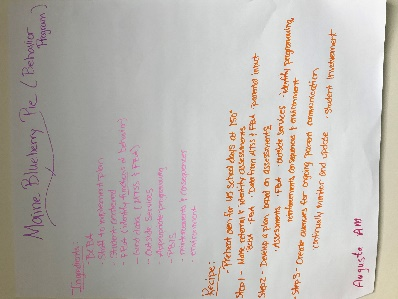 Maine Blueberry Pie (Behavior
Program)
Ingredients:
- BCBA
- Staff to implement plan
- Student involvement
- FBA (identify functions of behavior)
- Outside Services
- Appropriate programming
- PBIS
- reinforcements & consequences
- Environment
Recipe:
- Preheat oven for 45 school days at 150°
Step 1 - Make referral & identify assessments
BCBA · FBA · Data from · FBA · parental input
Step 2 - Develop a plan based on assessments
· Assessments · FBA · outside services · identify programming,
reinforcements, consequences & environment
· Step 3 - Create avenues for ongoing parent communication,
continually monitor and update · Student involvement
Augusta AM